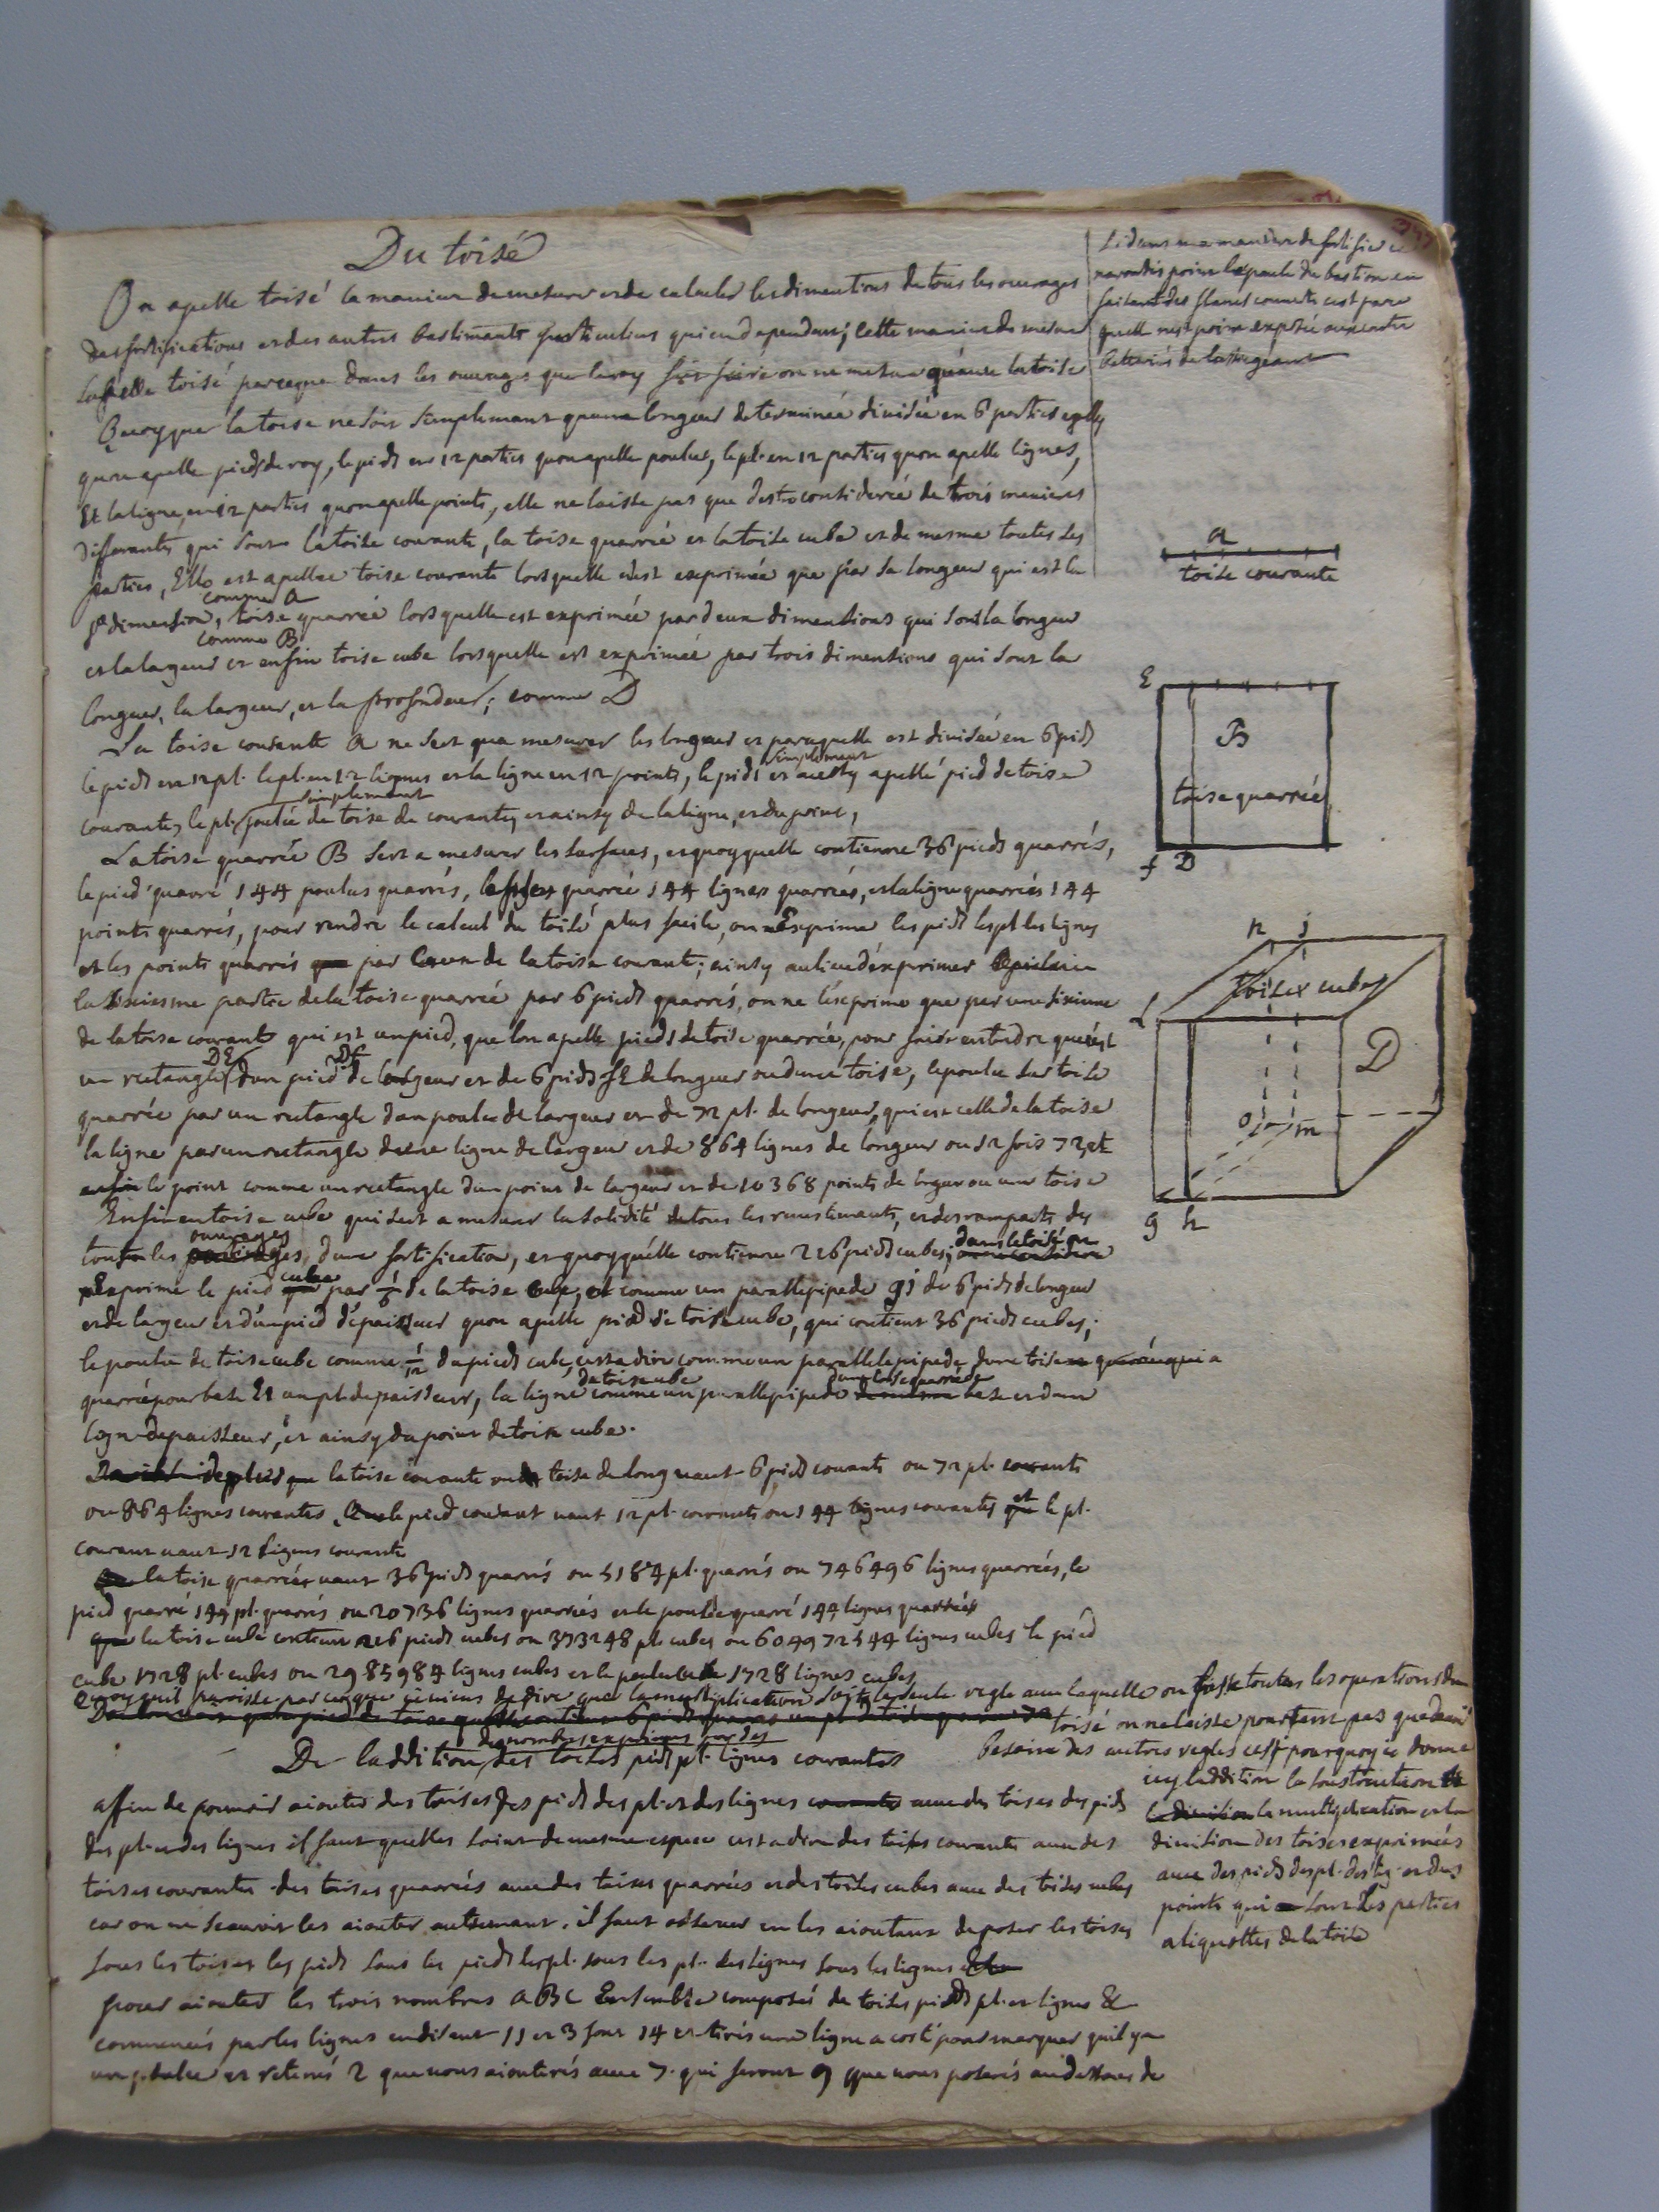 Du toisé
On apelle toisé la maniere de mesurer et de calculer les dimentions de tous les ouvrages
des fortifications et des autres bastimants particuliers qui en dependent; cette maniere de mesurer
sapelle toisé parceque dans les ouvrages que le roy fait faire on ne mesure qu'avec la toise
Quoyque la toise ne soit simplemant qu'une longeur determinée divisée en 6 parties egalles
qu'on apelle pieds de roy, le pied en 12 parties quon apelle poulces, le pl. en 12 parties quon apelle lignes,
Et la ligne en 12 parties quon apelle points, elle ne laisse pas que destre considerée de trois manieres
differantes qui sont la toise courante, la toise quarrée et la toise cube et de mesme toutes ses
parties, Elle est apellée toise courante lorsquelle n'est exprimée que par sa longeur qui est la
comme a
pre dimension, toise quarrée lorsquelle est exprimée par deux dimentions qui sont la longeur
comme B
et la largeur et enfin toise cube lorsquelle est exprimée par trois dimentions qui sont la
longeur, la largeur, et la profondeur; comme D
La toise courante a ne sert qua mesurer les longeurs et parcequelle est divisée en 6 pieds
simplement
le pied en 12 pl. le pl. en 12 lignes et la ligne en 12 points, le pied est apellé pied de toise
simplement
courante, le pl. poulce de toise courante, et ainsy de la ligne, et du point,
La toise quarrée B sert a mesurer les surfaces, et quoyquelle contienne 36 pieds quarrés,
le pied quarré 144 poulces quarrés, le poulce quarré 144 lignes quarrées, et la ligne quarrées 144
points quarrés, pour rendre le calcul du toisé plus facile, on exprime les pieds les pl. les lignes
et les points quarrés par ceux de la toise courante; ainsy au lieu d'exprimer
la sixiesme partie de la toise quarrée par 6 pieds quarrés, on ne l'exprime que par une sixieme
de la toise courante qui est un pied, que lon apelle pied de toise quarrée, pour faire entendre que c'est
DE Df
un rectangle d'un pied de largeur et de 6 pieds fE de longeur ou d'une toise, le poulce de toise
quarrée par un rectangle d'un poulce de largeur et de 72 pl. de longeur, qui est celle de la toise
la ligne par un rectangle d'une ligne de largeur et de 864 lignes de longeur ou 12 fois 72, et
enfin le point comme un rectangle d'un point de largeur et de 10368 points de longeur ou une toise
Enfin en toise cube qui sert a mesurer la solidité de tous les revestemants, et des ramparts des
ouvrages dans le toisé on
toutes les d'une fortification, et quoyqu'elle contienne 216 pieds cubes;
cube
exprime le pied par 1/6 de la toise cube, et comme un parallepipede gj de 6 pieds de longeur
et de largeur et d'un pied d'épaisseur quon apelle pied de toise cube, qui contient 36 pieds cubes;
le poulce de toise cube comme 1/12 du pied cube, cest a dire comme un parallelepipede d'une toise
de toise cube d'une toise quarrée de
quarrée pour base Et un pl. depaisseur, la ligne comme un parallepipede base et d'une
lign. depaisseur, et ainsy du point de toise cube.
la toise courante toise de long vaut 6 pieds courants ou 72 pl. courants
ou 864 lignes courantes, le pied courant vaut 12 pl. courants ou 144 lignes courantes et le pl.
courant vaut 12 lignes courante
la toise quarrée vaut 36 pieds quarrés ou 5184 pl. quarrés ou 746496 lignes quarrées, le
pied quarré 144 pl. quarrés ou 20736 lignes quarrées et le poulce quarré 144 lignes quarrées
que la toise cube contient 216 pieds cubes ou 373248 pl. cubes ou 604972544 lignes cubes le pied
cube 1728 pl. cubes ou 2985984 lignes cubes et le poulce cube 1728 lignes cubes
Quoyquil paroisse par ceque je viens de dire que la multiplication soit la seule regle avec laquelle on fasse toutes les operations du
toisé on ne laisse pourtant pas que davoir
besoin des autres regles cest pourquoy je donne
icy laddition la soustraction
la multiplication et la
division des toises exprimées
avec des pieds des pl. des lig. et des
points qui sont les parties
aliquottes de la toise
des nombres exprimes par des
De laddition des toises pieds pl. lignes courantes
affin de pouvoir aiouter des toises des pieds des pl. et des lignes avec des toises des pieds
des pl. et des lignes il faut quelles soint de mesme espece cest a dire des toises courantes avec des
toises courantes des toises quarrées avec des toises quarrées et des toises cubes avec des toises cubes
car on ne scauroit les aiouter autremant. il faut observer en les aioutant de poser les toises
sous les toises les pieds sous les pieds les pl. sous les pl. les lignes sous les lignes
pour aiouter les trois nombres ABC Ensemble composés de toises pieds pl. et lignes &
commencés par les lignes en disant 11 et 3 font 14 et tirés une ligne a costé pour marquer quil y a
un poulce et retenés 2 que vous aiouterés avec 7. qui feront 9 que vous poserés au dessous de
si dans ma maniere de fortifier je
narondis point lepaule du bastion en
faisant des flancs couverts cest parce
quelle nest point exposée aux contre
batteries de lassiegeant
a
toise courante
E
B
toise quarrée
f D
n j
toise cube
l
D
o m
g h